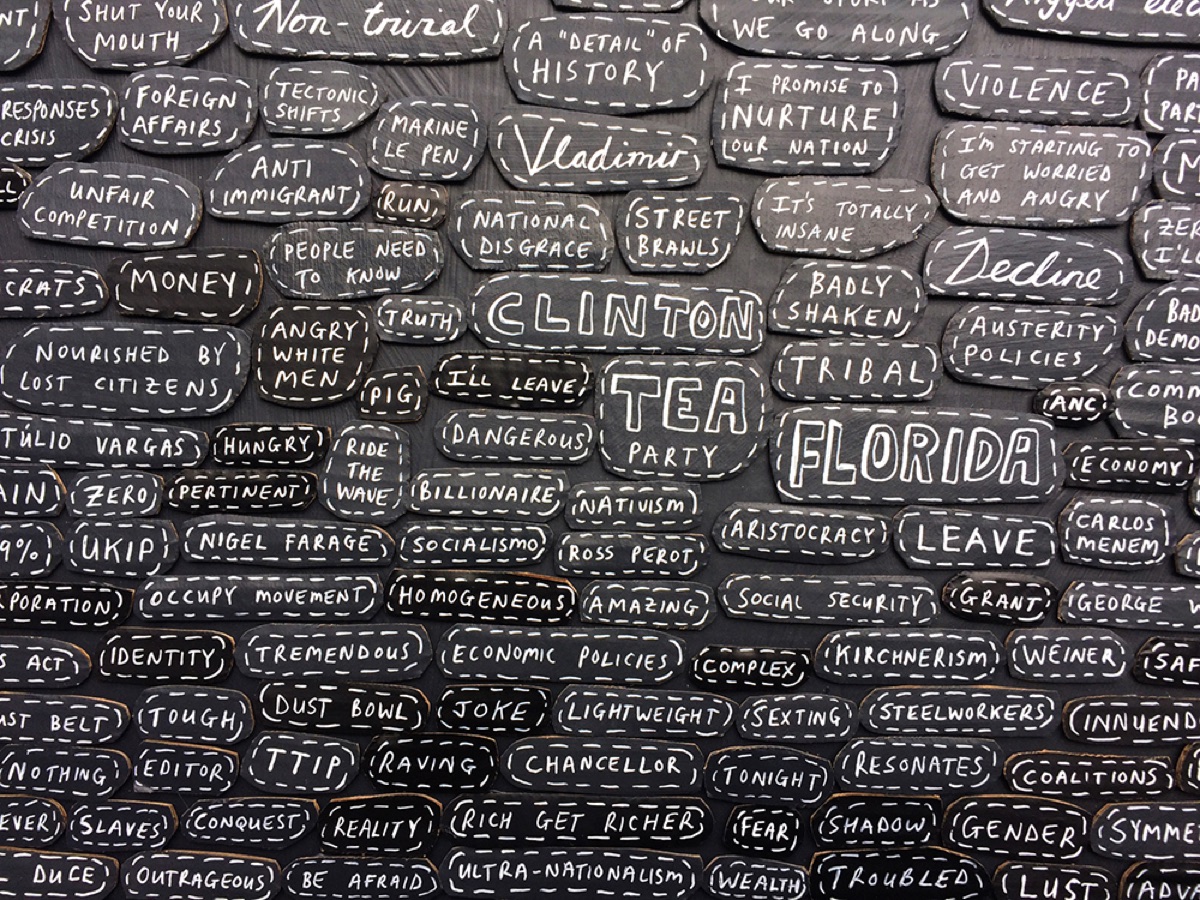 SHUT YOUR
MOUTH
Non-trivial
A "DETAIL" OF
HISTORY
WE GO ALONG
RESPONSES
CRISIS
FOREIGN
AFFAIRS
TECTONIC
SHIFTS
MARINE
LE PEN
Vladimir
I PROMISE TO
NURTURE
OUR NATION
VIOLENCE
I'M STARTING TO
GET WORRIED
AND ANGRY
UNFAIR
COMPETITION
ANTI
IMMIGRANT
RUN
NATIONAL
DISGRACE
STREET
BRAWLS
IT'S TOTALLY
INSANE
PEOPLE NEED
TO KNOW
Decline
CRATS
MONEY
TRUTH
CLINTON
BADLY
SHAKEN
AUSTERITY
POLICIES
BAD
DEMO
NOURISHED BY
LOST CITIZENS
ANGRY
WHITE
MEN
PIG
I'LL LEAVE
TEA
PARTY
TRIBAL
ANC
COMM
BO
TÚLIO VARGAS
HUNGRY
RIDE
THE
WAVE
DANGEROUS
FLORIDA
ECONOMY
AIN
ZERO
PERTINENT
BILLIONAIRE
NATIVISM
9%
UKIP
NIGEL FARAGE
SOCIALISMO
ROSS PEROT
ARISTOCRACY
LEAVE
CARLOS
MENEM
RPORATION
OCCUPY MOVEMENT
HOMOGENEOUS
AMAZING
SOCIAL SECURITY
GRANT
GEORGE
S ACT
IDENTITY
TREMENDOUS
ECONOMIC POLICIES
COMPLEX
KIRCHNERISM
WEINER
SAF
UST BELT
TOUGH
DUST BOWL
JOKE
LIGHTWEIGHT
SEXTING
STEELWORKERS
INNUEND
NOTHING
EDITOR
TTIP
RAVING
CHANCELLOR
TONIGHT
RESONATES
COALITIONS
EVER
SLAVES
CONQUEST
REALITY
RICH GET RICHER
FEAR
SHADOW
GENDER
SYMME
DUCE
OUTRAGEOUS
BE AFRAID
ULTRA-NATIONALISM
WEALTH
TROUBLED
LUST
ADVA